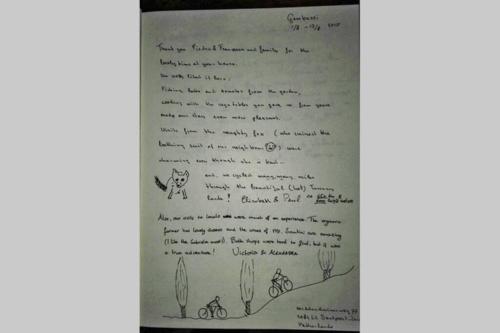 Gambassi
Thank you Piedro & Francesca and family for the
lovely time at your house.
We really liked it here:
Picking and tomatoes from the garden,
cooking with the vegetables you gave us from yours
made our stay even more pleasant.
Visits from the naughty fox (who stained the
bathing suit of our neighbour) were
charming even though she is bad...
and, we cycled many, many miles
through the beautiful (hot) Tuscany
lands! Elizabeth & Paul
Also, our visits to locals were much of an experience. The organic
farmer has lovely cheeses and the wines of Mr. Santini are amazing
(I like the most). Both shops were hard to find, but it was
a true adventure! Victoria & Alexandra
Netherlands